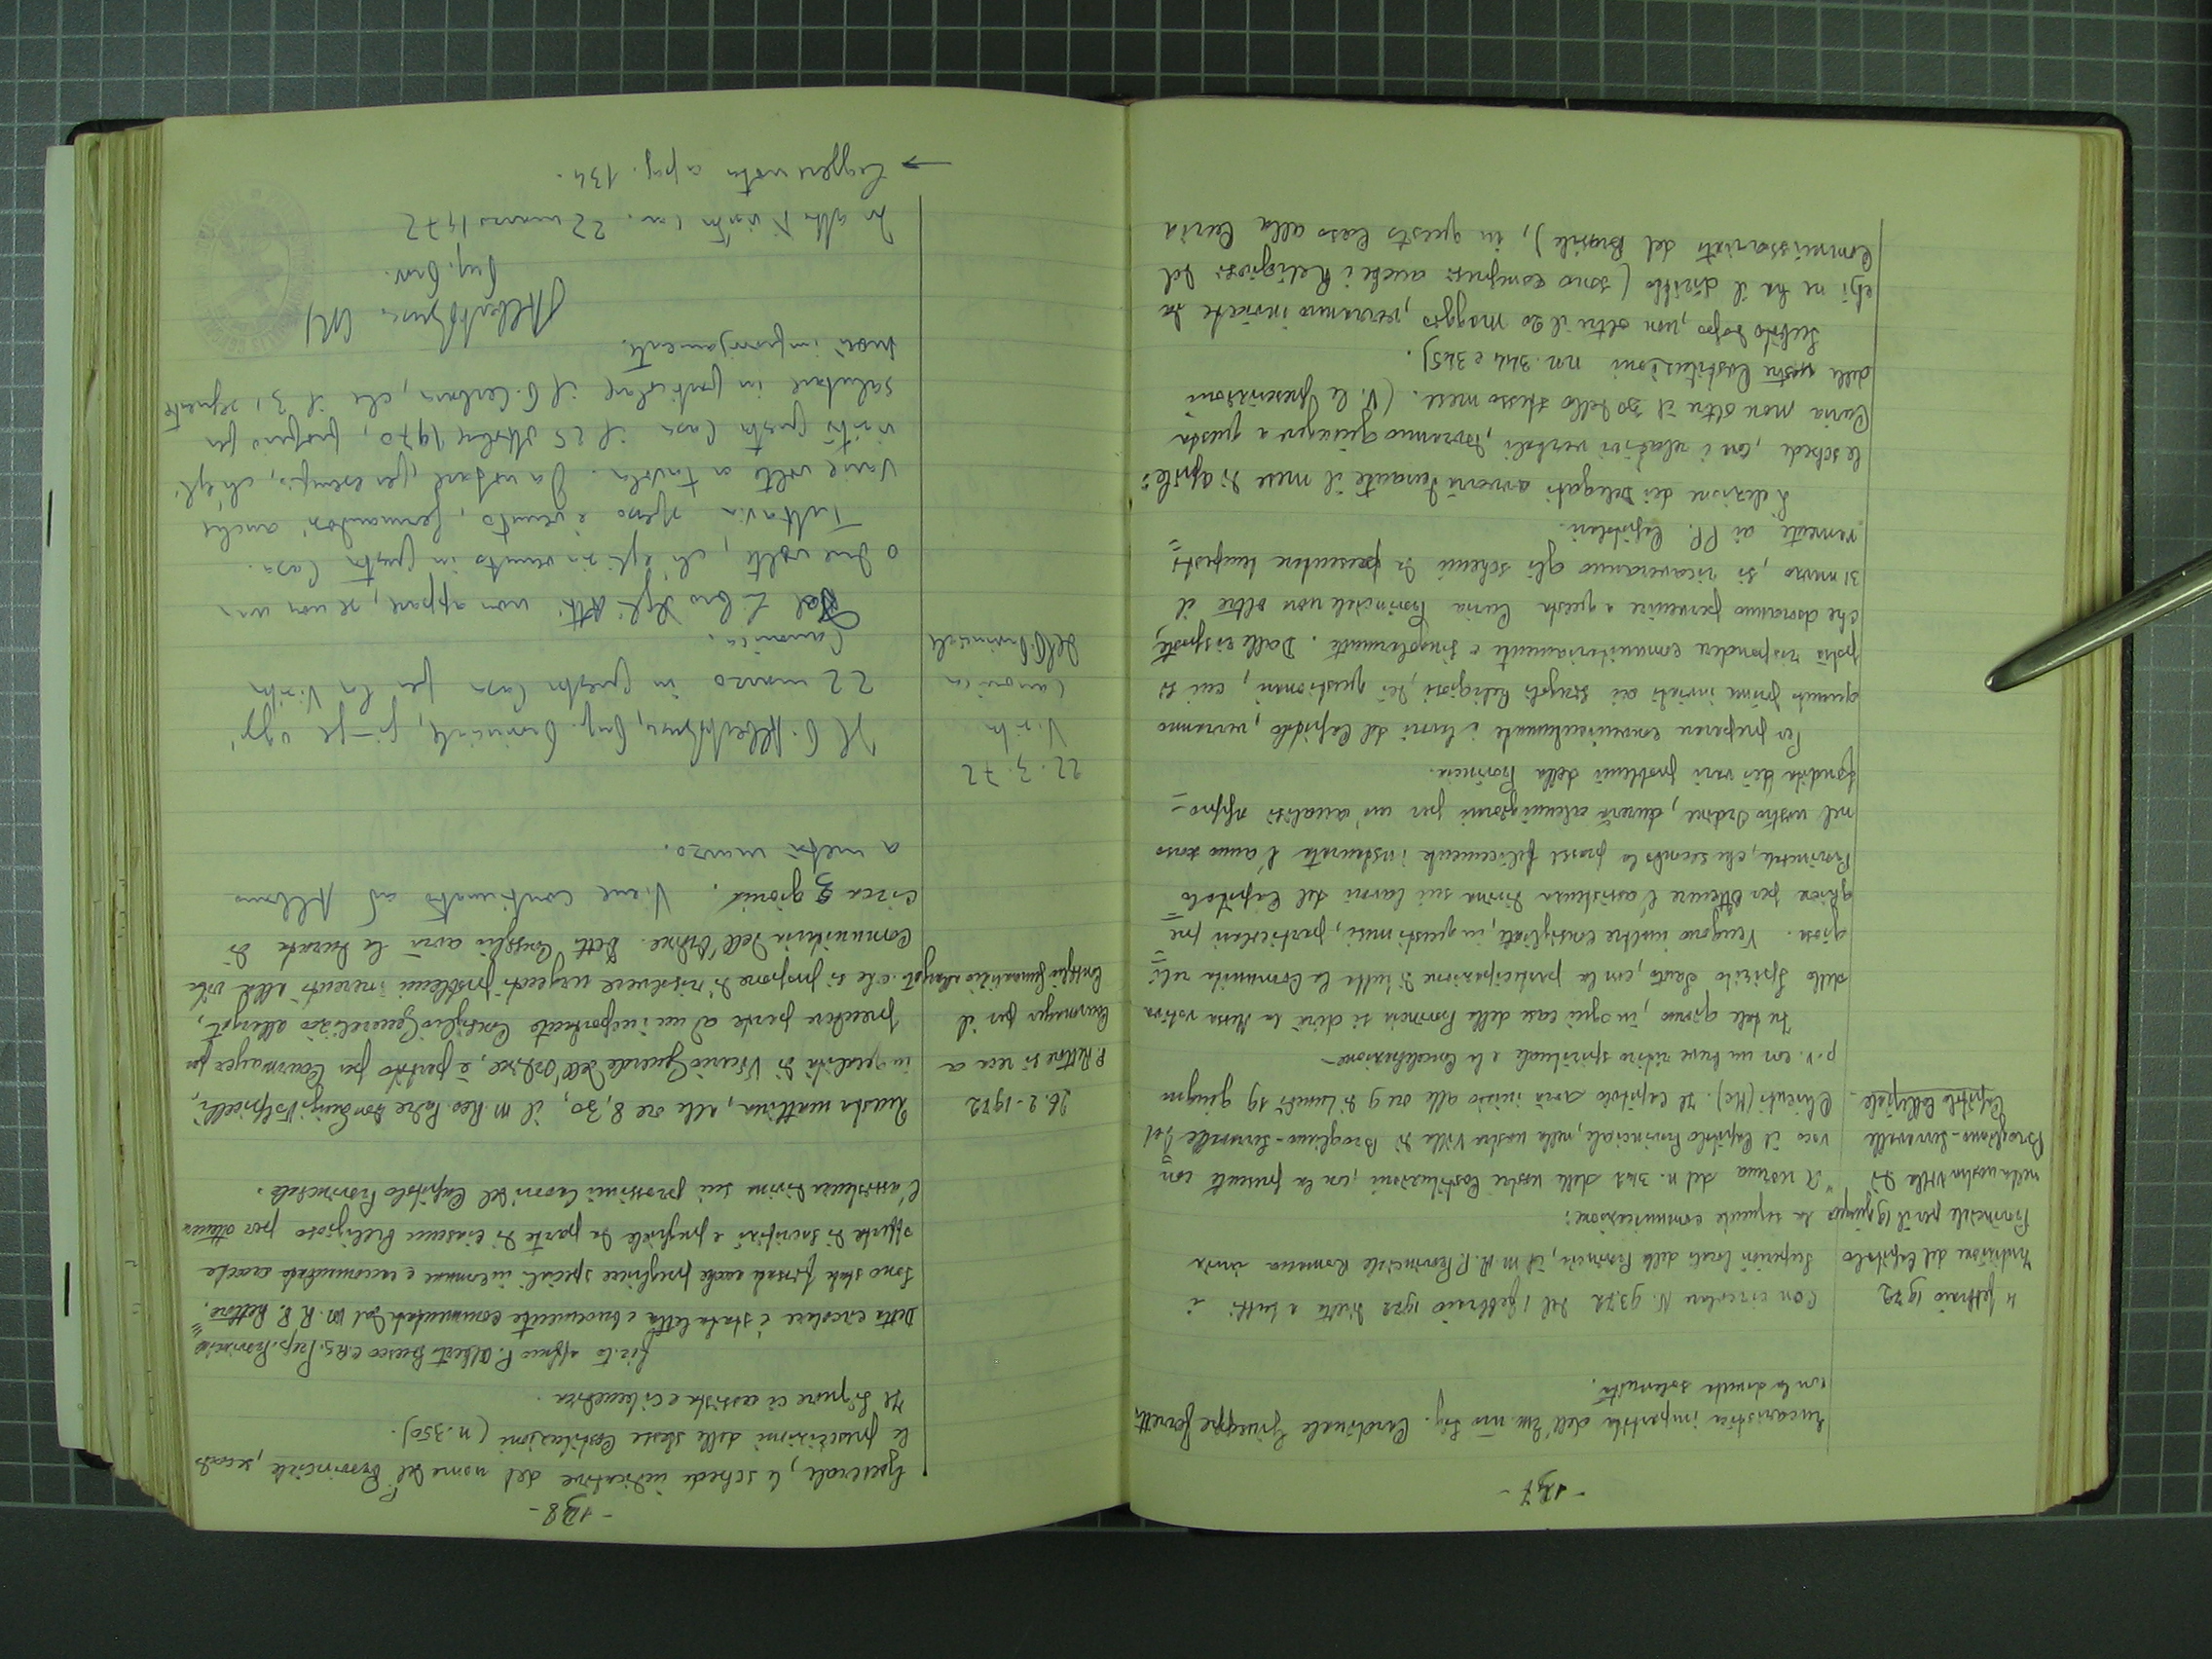 - 137 -
Eucaristica impartita dall'Em.mo Sig. Cardinale Giuseppe Ferretto
con la dovuta solennità.
4 febbraio 1972
Indizione del Capitolo
Provinciale per il 19 giugno
nella nostra Villa di
Brogliano-Serravalle
Capitolo Collegiale -
Con circolare N. 93.72 del 1 febbraio 1972 diretta a tutti i
Superiori locali della Provincia, il M. R. P. Provinciale Romana invia
la seguente comunicazione:
"A norma del n. 348 delle nostre Costituzioni, con la presente con=
voco il Capitolo Provinciale, nella nostra Villa di Brogliano-Serravalle del
Chienti (Mc). Il Capitolo avrà inizio alle ore 9 di Lunedì 19 giugno
p.v. con un breve ritiro spirituale e la Concelebrazione -
In tale giorno, in ogni casa della Provincia si dirà la Messa votiva
dello Spirito Santo, con la partecipazione di tutta la Comunità reli=
giosa. Vengono inoltre consigliate, in questi mesi, particolari pre=
ghiere per ottenere l'assistenza divina sui lavori del Capitolo
Provinciale, che secondo la prassi felicemente instaurata l'anno scorso
nel nostro Ordine, durerà alcuni giorni per un'analisi appro=
fondita dei vari problemi della Provincia.
Per preparare comunitariamente i lavori del Capitolo, verranno
quanto prima inviati ai singoli Religiosi, dei questionari, cui si
potrà rispondere comunitariamente o singolarmente. Dalle risposte,
che dovranno pervenire a questa Curia Provinciale non oltre il
31 marzo, si ricaveranno gli schemi da presentare tempesti=
vamente ai PP. Capitolari.
L'elezione dei Delegati avverrà durante il mese di aprile:
le schede, con i relativi verbali, dovranno giungere a questa
Curia non oltre il 30 dello stesso mese. (V. le prescrizioni
delle nostre Costituzioni nn. 344 e 345).
Subito dopo, non oltre il 20 maggio, verranno inviate da
chi ne ha il diritto (sono compresi anche i Religiosi del
Commissariato del Brasile), in questo caso alla Curia
- 138 -
Generale, le schede indicative del nome del Provinciale, secondo
le prescrizioni delle stesse Costituzioni (n. 350).
Il Signore ci assista e ci benedica.
fir.to aff.mo P. Alberto Busco CRS, Prep. Provinciale
Detta circolare è stata letta e brevemente commentata dal M. R. P. Rettore.
Sono state fissate anche preghiere speciali in comune e raccomandate anche
offerte di sacrifici e preghiere da parte di ciascun Religioso per ottenere
l'assistenza divina sui prossimi lavori del Capitolo Provinciale.
26.2-1972
P. Rettore si reca a
Courmayer per il
Consiglio Generalizio allargato
Questa mattina, alle ore 8,30, il M. Rev. Padre Don Luigi Volpicelli,
in qualità di Vicario Generale dell'Ordine, è partito per Courmayer per
prendere parte ad un importante Consiglio Generalizio allargato,
che si propone di risolvere urgenti problemi inerenti alla vita
Comunitaria dell'Ordine. Detto Consiglio avrà la durata di
circa 3 giorni. Viene continuato ad Albano
a metà marzo.
22.3.72
Visita
Canonica
del P. Provinciale
Il P. Alberto Busco, Prep. Provinciale, giunge oggi
22 marzo in questa Casa per la Visita
Canonica.
Dal Libro degli Atti non appare, se non una
o due volte, ch'egli sia venuto in questa Casa.
Tuttavia spesso è venuto, fermandosi anche
varie volte a tavola. Da notare, per esempio, ch'egli
visitò questa Casa il 25 ottobre 1970, proprio per
salutare in particolare il P. Cerbara, che il 31 seguente
morì improvvisamente.
P. Alberto Busco CRS
Prep. Prov.
In atto di visita Can. 22 marzo 1972
→ Leggere nota a pag. 134.